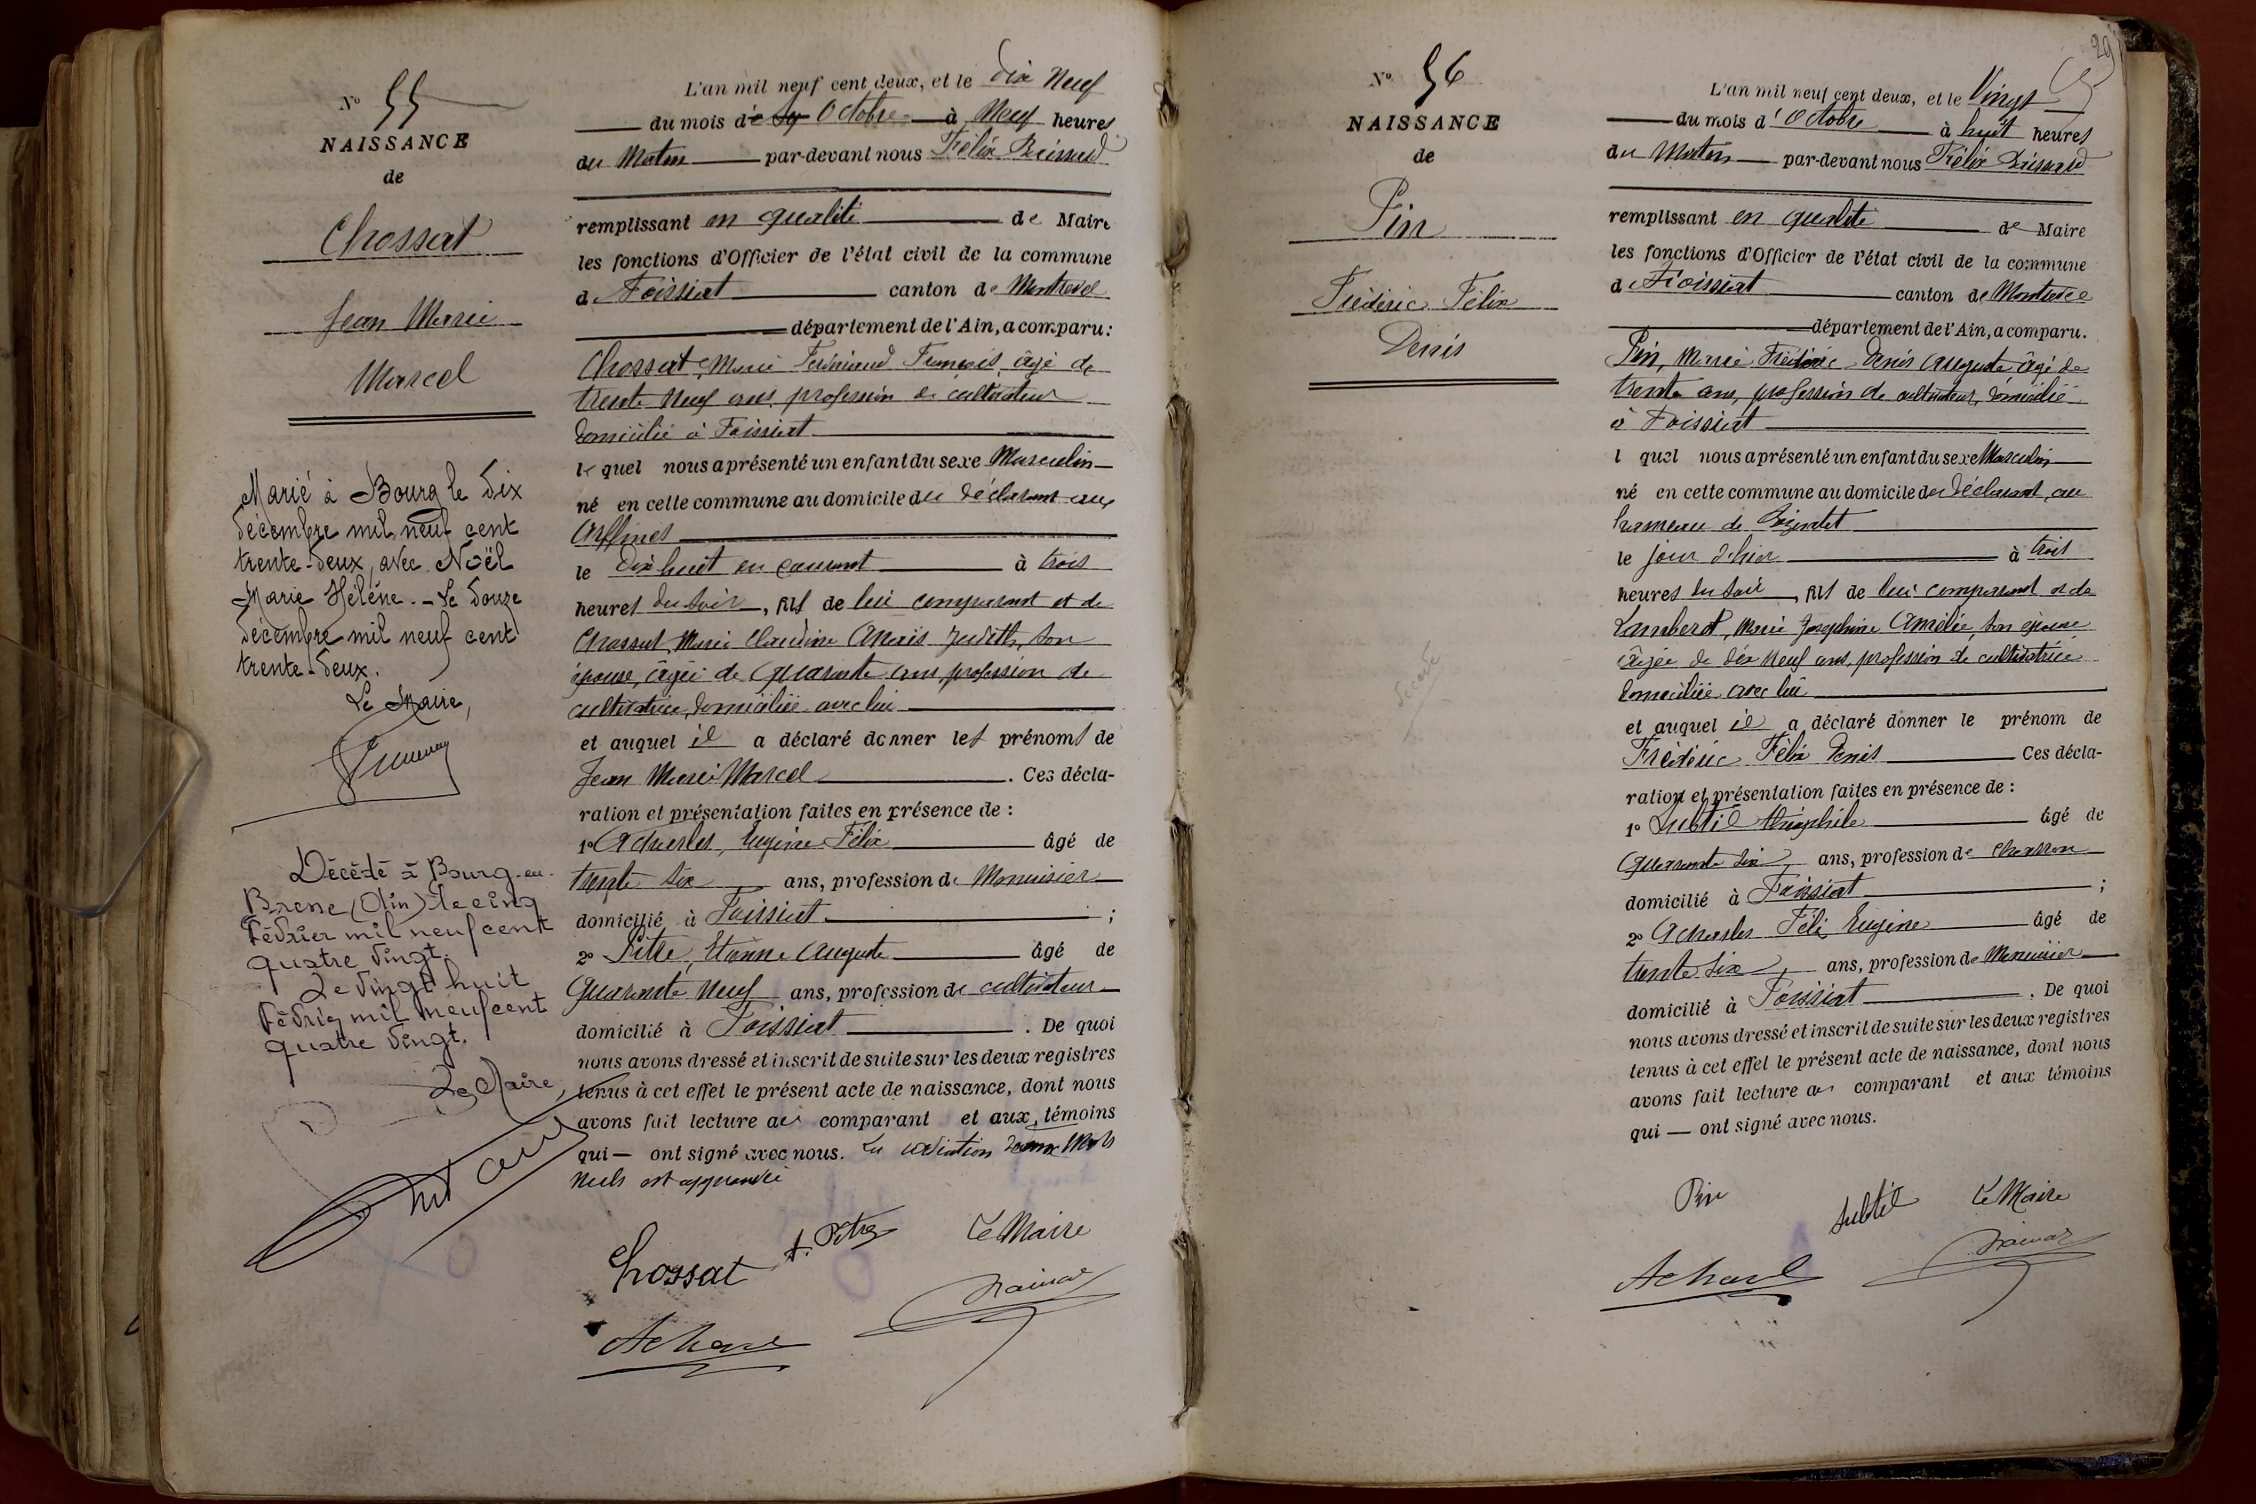 Nº 55
NAISSANCE
de
Chossat
Jean Marie
Marcel
Marié à Bourg le dix
décembre mil neuf cent
trente-deux, avec Noël
Marie Hélène. - Le douze
décembre mil neuf cent
trente-deux.
Le Maire,
Décédé à Bourg-en-
Bresse (Ain) le cinq
Février mil neuf cent
quatre vingt.
Le vingt huit
Février mil neuf cent
quatre vingt.
Le Maire,
L'an mil neuf cent deux, et le dix Neuf
du mois d' Octobre à Neuf heures
du Matin par-devant nous Félix
remplissant en qualité de Maire
les fonctions d'Officier de l'état civil de la commune
de Foissiat canton de Montrevel
département de l'Ain, a comparu:
Chossat, Marie Ferdinand François, âgé de
trente Neuf ans, profession de cultivateur
domicilié à Foissiat
lequel nous a présenté un enfant du sexe Masculin
né en cette commune au domicile du déclarant aux
le dix huit du courant à trois
heures du soir, fils de lui comparant et de
Chossat, Marie Claudine Anaïs Judith, son
épouse, âgée de Quarante ans, profession de
cultivatrice, domiciliée avec lui
et auquel il a déclaré donner les prénoms de
Jean Marie Marcel. Ces décla-
ration et présentation faites en présence de :
1º Eugène Félix âgé de
trente six ans, profession de Menuisier
domicilié à Foissiat ;
2º Pitre, Etienne Auguste âgé de
Quarante Neuf ans, profession de cultivateur
domicilié à Foissiat. De quoi
nous avons dressé et inscrit de suite sur les deux registres
tenus à cet effet le présent acte de naissance, dont nous
avons fait lecture au comparant et aux témoins
qui — ont signé avec nous. La radiation de Mots
Nuls est approuvée
Chossat A. Pitre Le Maire
Achard
29
Nº 56
NAISSANCE
de
Pin
Frédéric Félix
Denis
L'an mil neuf cent deux, et le Vingt
du mois d'Octobre à huit heures
du Matin par-devant nous Félix
remplissant en qualité de Maire
les fonctions d'Officier de l'état civil de la commune
de Foissiat canton de Montrevel
département de l'Ain, a comparu.
Pin, Marie Frédéric Denis Auguste âgé de
trente ans, profession de cultivateur, domicilié
à Foissiat
lquel nous a présenté un enfant du sexe Masculin
né en cette commune au domicile du déclarant, au
hameau de
le jour d'hier à trois
heures du soir, fils de lui comparant et de
Lamberet, Marie Joséphine Amélie, son épouse
âgée de dix Neuf ans, profession de cultivatrice
domiciliée avec lui
et auquel il a déclaré donner le prénom de
Frédéric Félix Denis Ces décla-
ration et présentation faites en présence de :
1º Subtil Théophile âgé de
Quarante six ans, profession de charron
domicilié à Foissiat ;
2º Féli Eugène âgé de
trente six ans, profession de Menuisier
domicilié à Foissiat. De quoi
nous avons dressé et inscrit de suite sur les deux registres
tenus à cet effet le présent acte de naissance, dont nous
avons fait lecture au comparant et aux témoins
qui — ont signé avec nous.
Pin Subtil Le Maire
Achard